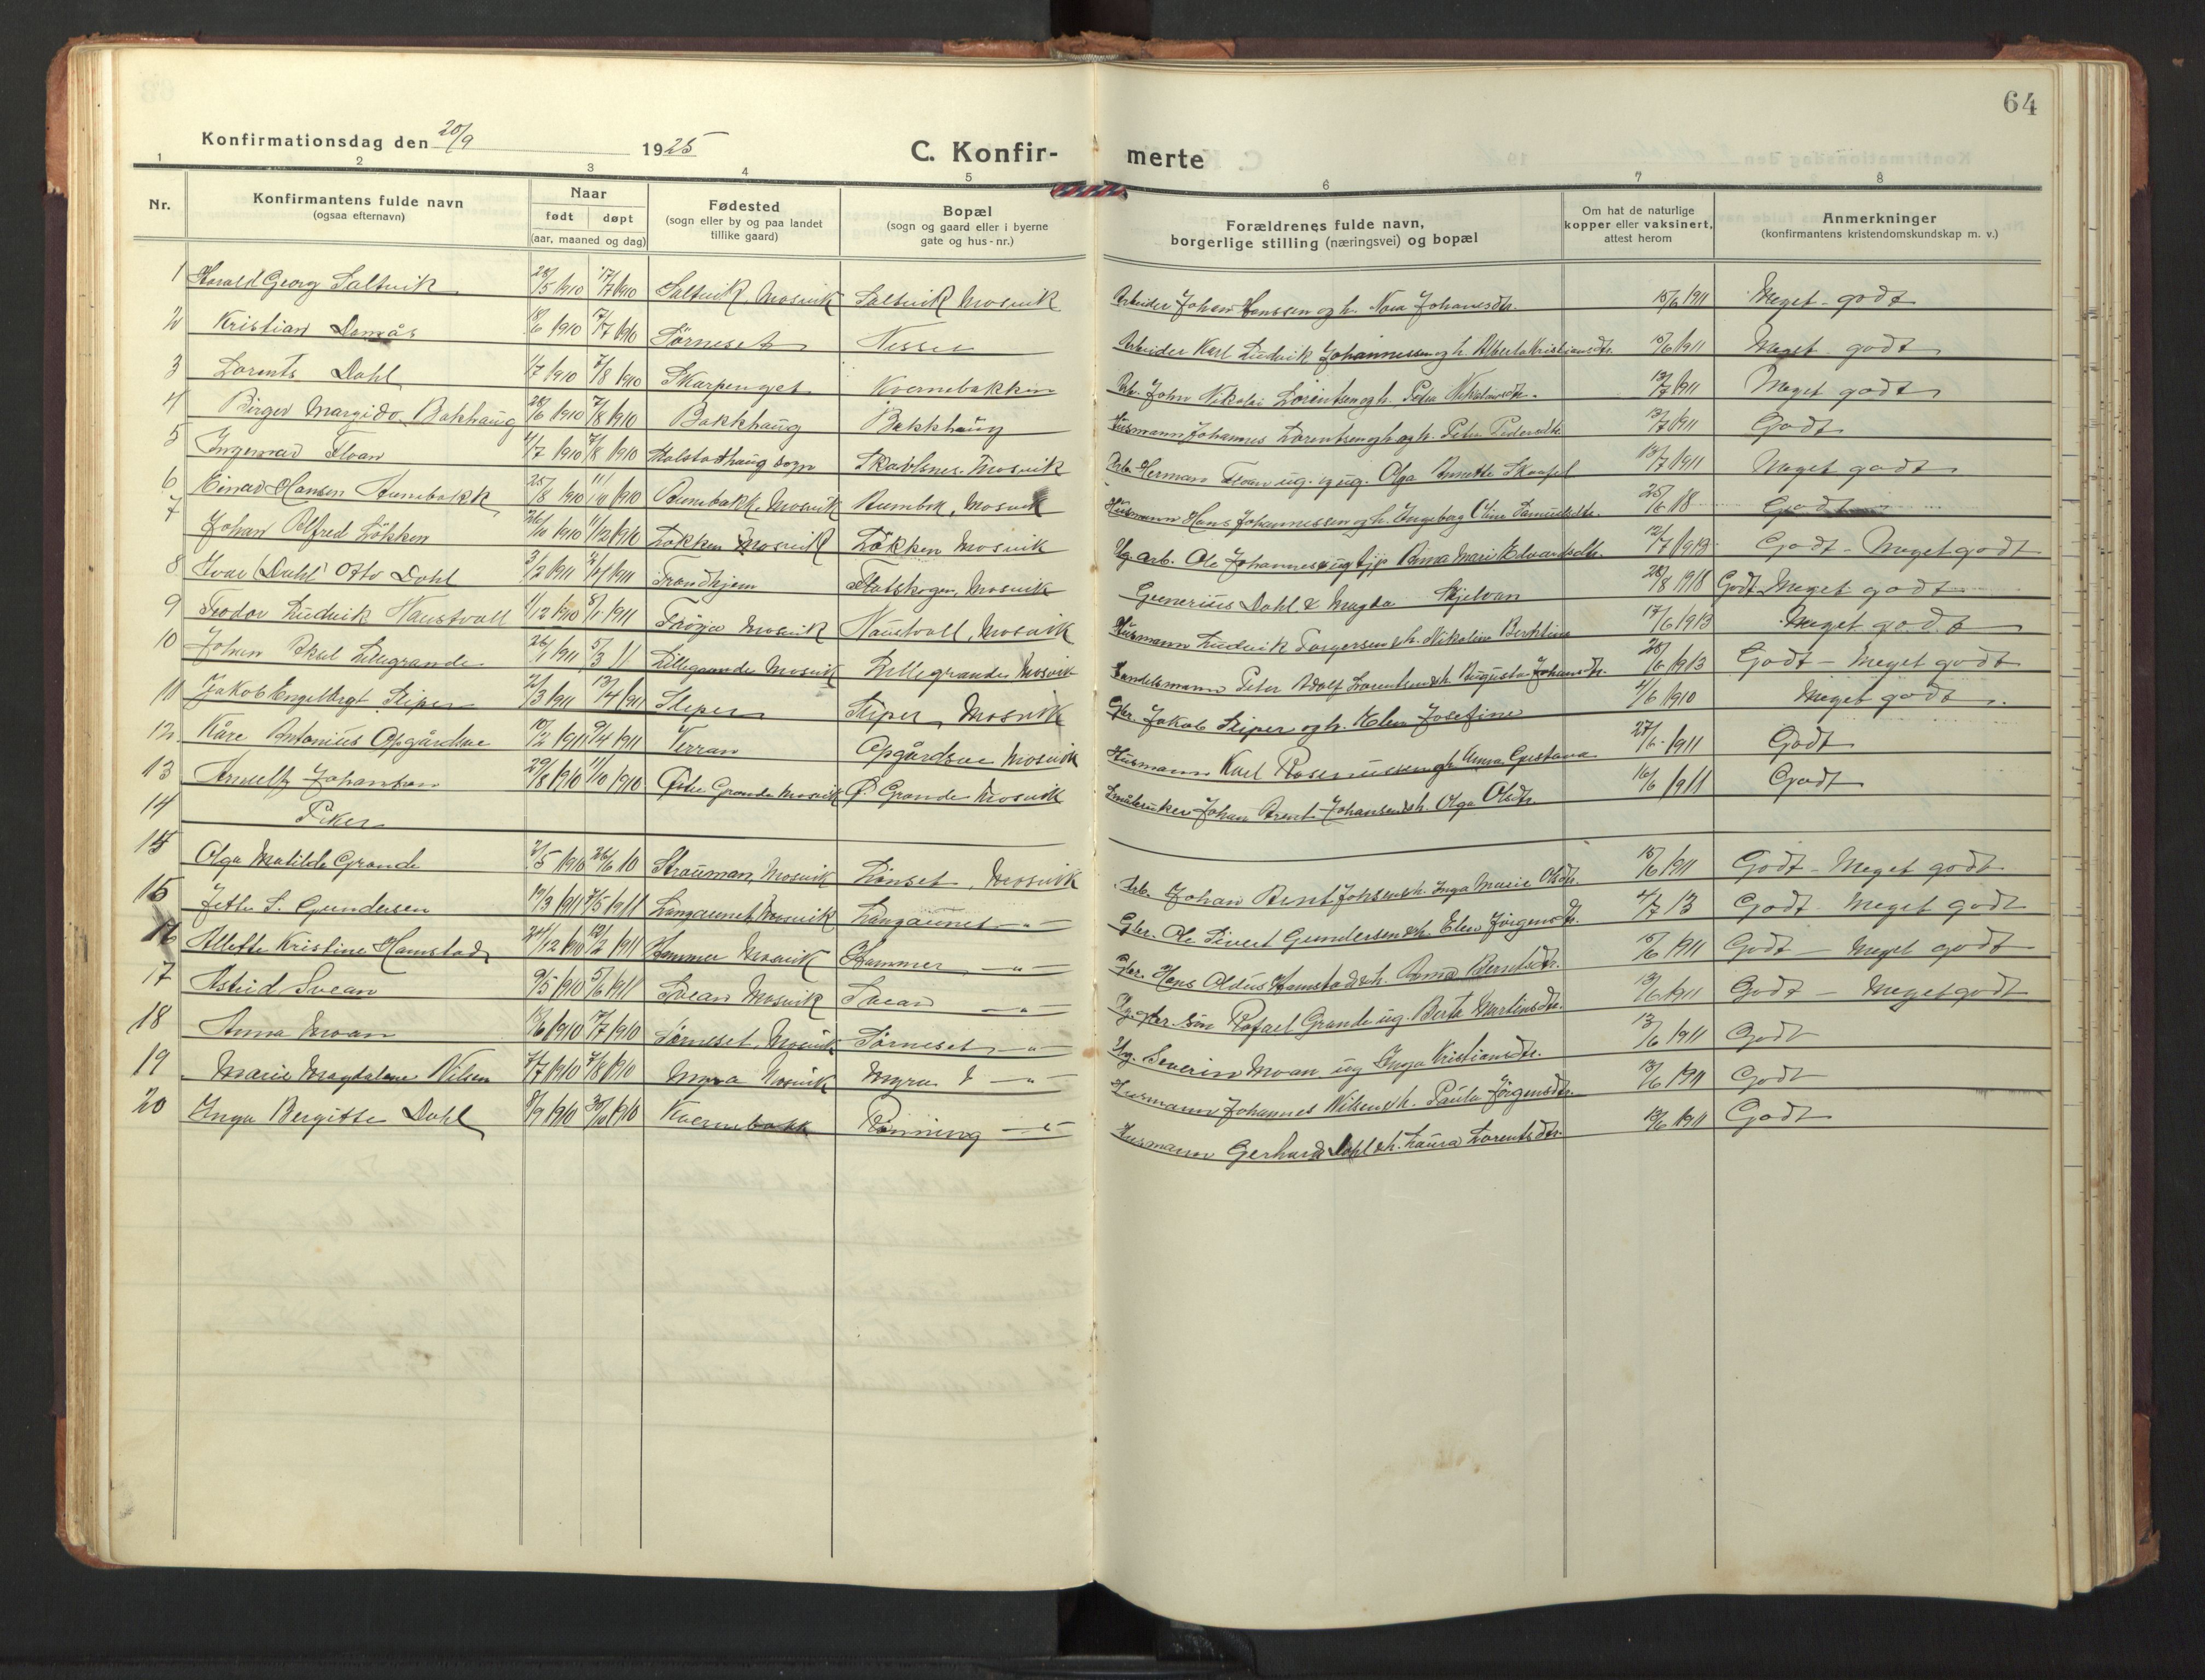 64
Konfirmationsdag den 20/9 1925
C. Konfir- merte
1 2 3 4 5 6 7 8
Nr.
Konfirmantens fulde navn
(ogsaa efternavn)
Naar
født døpt
(aar, maaned og dag)
Fødested
(sogn eller by og paa landet
tillike gaard)
Bopæl
(sogn og gaard eller i byerne
gate og hus-nr.)
Forældrenes fulde navn,
borgerlige stilling (næringsvei) og bopæl
Om hat de naturlige
kopper eller vaksinert,
attest herom
Anmerkninger
(konfirmantens kristendomskundskap m. v.)
1 Harald Georg Saltvik 28/5 1910 17/7 1910 Saltvik, Mosvik Saltvik Mosvik Arbeider Johan Hanssen og h. Nora Johansdtr. 15/6 1911 Meget godt
2 Kristian Damås 6 1910 17/7 1910 Sörneset Nesset Arbeider Karl Ludvik Johannessen og h. Alberta Kristiansdtr. 15/6 1911 Meget godt
3 Lorents Dahl 1/7 1910 7/8 1910 Skarpenget Kvernebakken Arb. John Nikolai Lorentsen og h. Petra 13/7 1911 Meget godt
4 Birger Margido Bakkhaug 28/6 1910 7/8 1910 Bakkhaug Bakkhaug Husmann Johannes Lorentsen og h. Pedersdtr. 13/7 1911 Godt
5 Ingemar Floan 4/7 1910 7/8 1910 Alstadhaug sogn Skavlsnes, Mosvik Arb. Herman Floan ug. og ug. Olga Annette 13/7 1911 Meget godt
6 Einar Hansen Aunebakk 25/8 1910 11/10 1910 Aunebakk, Mosvik Aunebk, Mosvik Husmann Hans Johannessen og h. Ingeborg Oline Samuelsdtr. 25/6 18 Godt
7 Johan Alfred Løkken 26/10 1910 11/12 1910 Løkken Mosvik Løkken Mosvik Ug. arb. Ole Johannesen Anna Marie Edvardsdtr. 12/7 1913 Godt - Meget godt
8 Ivar (Dahl) Otto Dahl 3/2 1911 2/4 1911 Trondhjem Flatskogen, Mosvik Generius Dahl & Magda Skjelvan 28/8 1918 Godt Meget godt
9 Teodor Ludvik Naustvoll 1/12 1910 8/1 1911 Trøya Mosvik Naustvoll, Mosvik Husmann Ludvik Torgersen & h. Nikoline 17/6 1913 Meget godt
10 Johan Aksel Lillegrande 26/1 1911 5/3 11 Lillegrande Mosvik Lillegrande Mosvik Handelsmann Peter Adolf Lorentsen & h. Augusta Johansdtr. 28/6 1913 Godt - Meget godt
11 Jakob Engelbrgt Sliper 2/3 1911 17/4 1911 Sliper Sliper, Mosvik Gbr. Jakob Sliper og h. Elen Josefine 4/6 1910 Meget godt
12 Kåre Antonius Opgårdsve 10/2 1911 9/4 1911 Verran Opgårdsve Mosvik Husmann Karl Rasmussen og h. Anna Gustava 27/6 1911 Godt
13 Arnulf Johansen 29/8 1910 11/10 1910 Østre Grande Mosvik Ø. Grande Mosvik Småbruker Johan Arnt Johansen & h. Olga Olsdtr. 16/6 1911 Godt
14 Piker
15 Olga Matilde Grande 2/5 1910 26/6 10 Strauman, Mosvik Linset, Mosvik Arb. Johan Arnt Johsen & h. Inga Marie Olsdtr. 15/6 1911 Godt - Meget godt
15 Jette S. Gundersen 19/3 1911 7/5 1911 Langaunet Mosvik Langaunet -"- Gbr. Ole Sivert Gundersen & h. Elen Jørgensdtr. 4/7 13 Godt - Meget godt
16 Allette Kristine Hamstad 24/12 1910 12/2 1911 Hammer Mosvik Hammer -"- Gbr. Hans Oldus Hamstad & h. Anna Berntsdtr. 15/6 1911 Godt - Meget godt
17 Astrid Svean 9/5 1910 5/6 1911 Svean Mosvik Svean -"- Rafael Grande ug. Berte Martinsdtr. 13/6 1911 Godt - Meget godt
18 Anna Moan 6 1910 17/7 1910 Sørneset, Mosvik Sørneset -"- Ug. Severin Moan ug Inga Kristiansdtr. 13/6 1911 Godt
19 Marie Magdalene Nilsen 7/7 1910 7/8 1910 Myra Mosvik Myra -"- Husmann Johannes Nilsen & h. Paula Jørgensdtr. 13/6 1911 Godt
20 Inga Bergitte Dahl 8/9 1910 30/10 1910 Kvernebakk Rønning -"- Husmann Gerhard Dahl & h. Laura Lorentsdtr. 13/6 1911 Godt